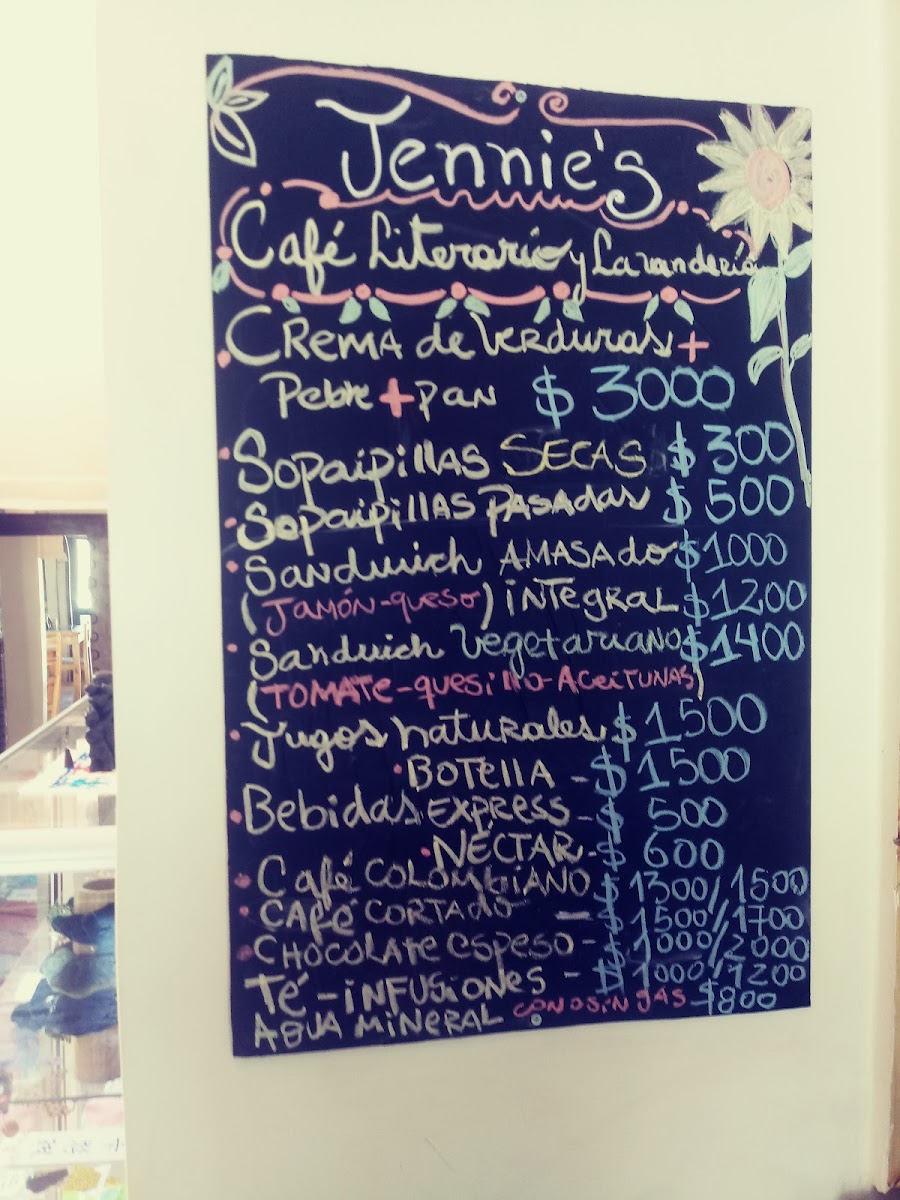 Jennie's
Café Literario y Lavandería
CREMA de Verduras +
Pebre + pan $ 3000
Sopaipillas SECAS $ 300
Sopaipillas PASADAS $ 500
Sandwich AMASADO $1000
(JAMÓN-queso) iNTEGRAL $1200
Sandwich Vegetariano $1400
(TOMATE-quesillo-ACEITUNAS)
Jugos naturales $ 1500
BOTELLA - $ 1500
Bebidas EXPRESS - $ 500
NÉCTAR - $ 600
Café COLOMBIANO $ 1300/1500
CAFÉ CORTADO - $ 1500/1700
CHOCOLATE espeso - $ 1000/2000
TÉ - iNFUSiONES - $ 1000/1200
AGUA MiNERAL CON O SiN gAS $800